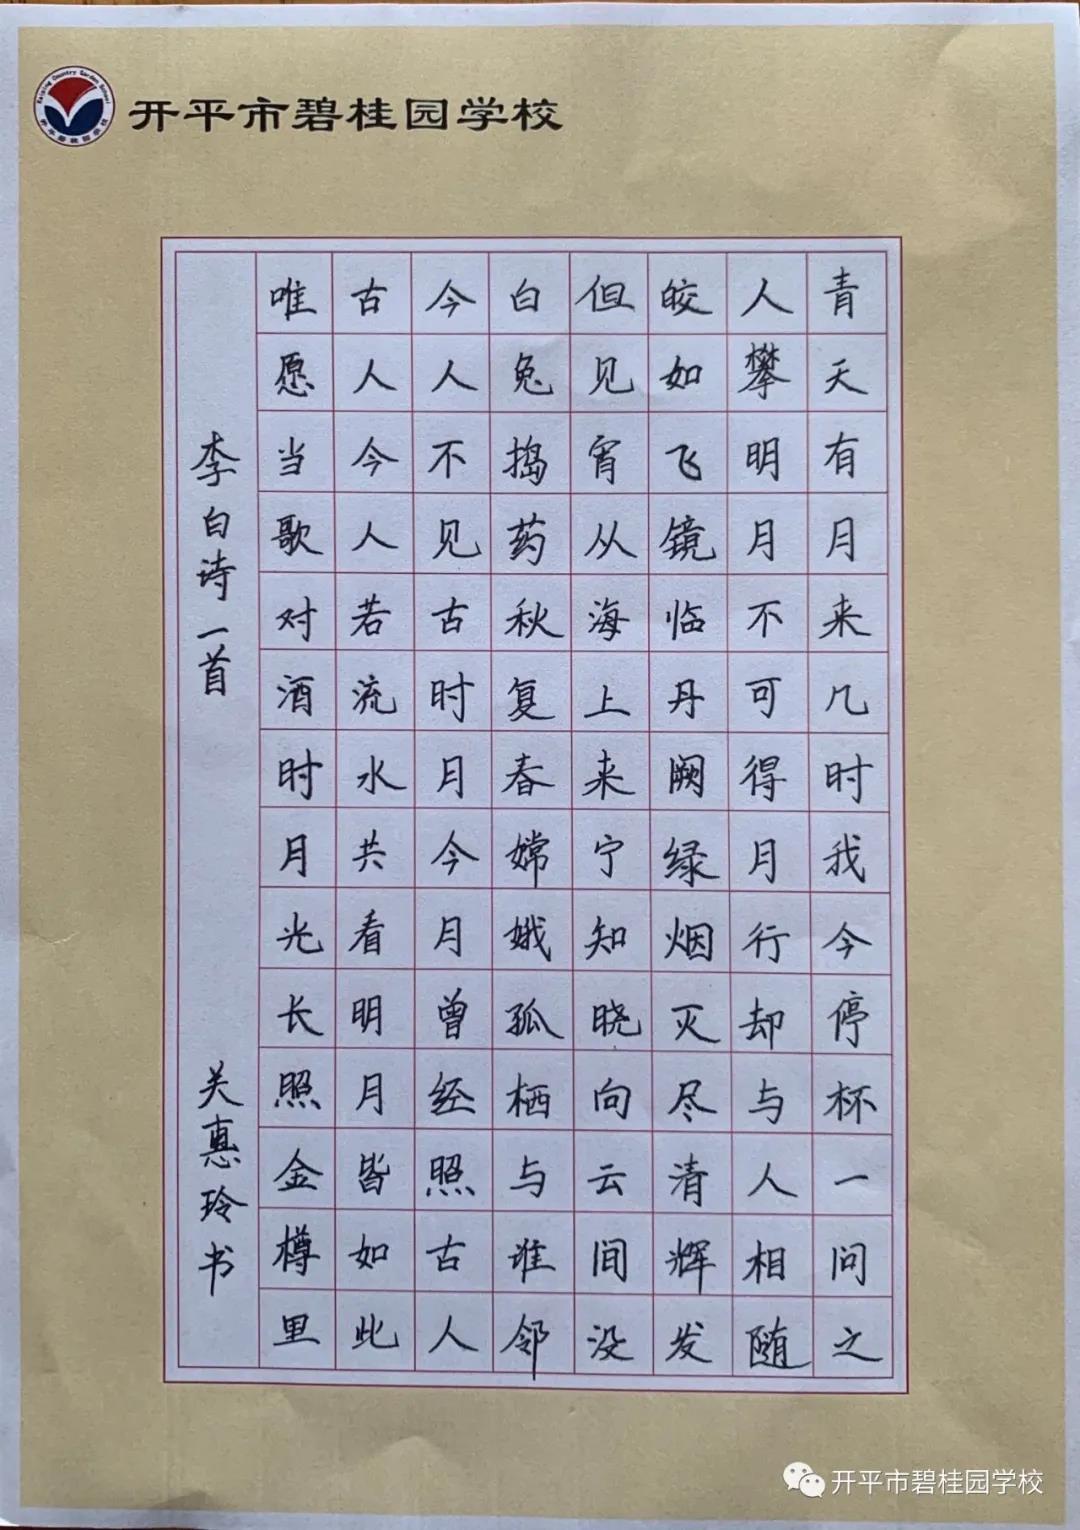 开平市碧桂园学校
Kaiping Country Garden School
开平碧桂园学校
青天有月来几时我今停杯一问之
人攀明月不可得月行却与人相随
皎如飞镜临丹阙绿烟灭尽清辉发
但见宵从海上来宁知晓向云间没
白兔捣药秋复春嫦娥孤栖与谁邻
今人不见古时月今月曾经照古人
古人今人若流水共看明月皆如此
唯愿当歌对酒时月光长照金樽里
李白诗一首
关惠玲书
开平市碧桂园学校